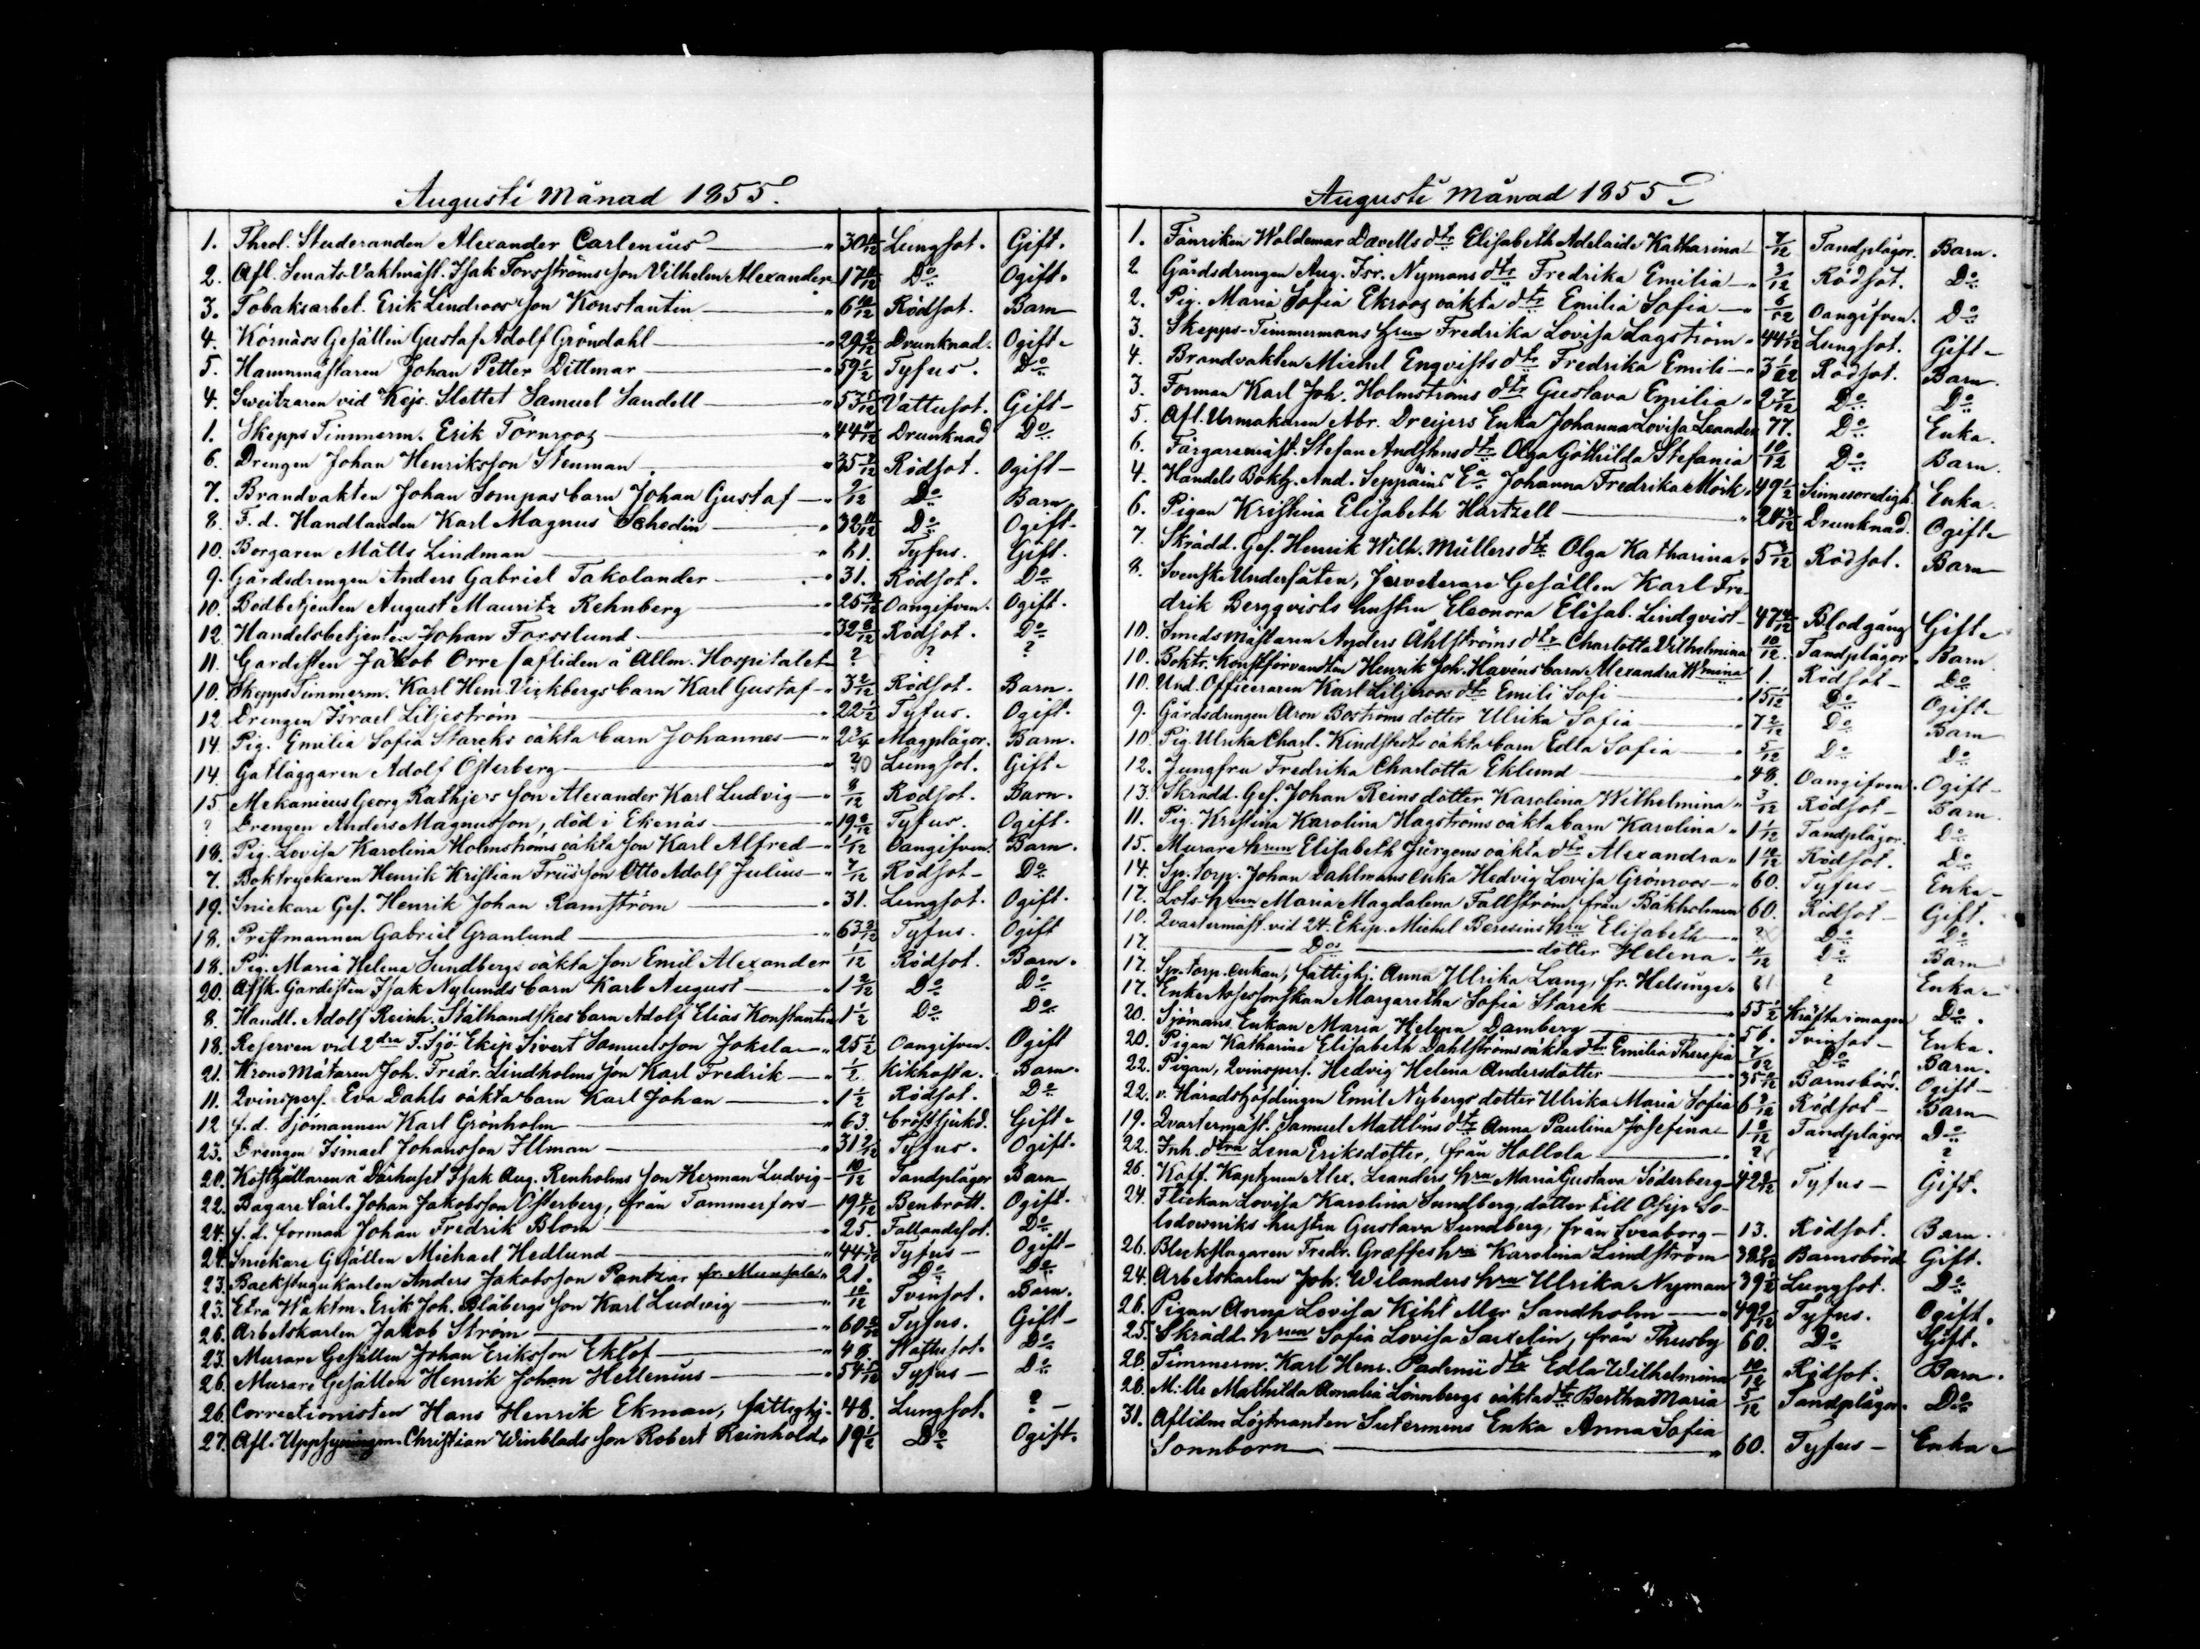 Augusti Månad 1855.
1. Theol. Studeranden Alexander Carlenius " 30 Lungsot. Gift.
2. Afl. Senats-Vaktmäst. Isak Forsströms son Vilhelm Alexander 17 Do Ogift.
3. Tobaksarbet. Erik Lindroos son Konstantin " 6 Rödsot. Barn
4. Körnärs Gesällen Gustaf Adolf Gröndahl " 29 Drunknad. Ogift
5. Hamnmästaren Johan Petter Dittmar " 59 1/2 Tyfus. Do
4. Sweitzaren vid Kejs. Slottet Samuel Sandell " 53 Vattusot. Gift
1. Skepps Timmerm. Erik Törnroos " 44 Drunknad Do
6. Drengen Johan Henriksson Stenman " 35 Rödsot. Ogift
7. Brandvakten Johan Sompas barn Johan Gustaf " 9/12 Do Barn
8. F. d. Handlanden Karl Magnus Schedin " 32 Do Ogift
10. Borgaren Matts Lindman " 61. Tyfus. Gift.
9. Gårdsdrengen Anders Gabriel Takolander " 31. Rödsot. Do
10. Bodbetjenten August Mauritz Rehnberg " 25 Oangifven. Ogift.
12. Handelsbetjenten Johan Forsslund " 32 Rödsot. Do
11. Gardisten Jakob Orre (afliden å Allm. Hospitalet ? ? ?
10. Skepps Timmerm. Karl Henr. Vickbergs barn Karl Gustaf " 3 2/12 Rödsot. Barn.
12. Drengen Israel Liljeström " 22 1/2 Tyfus. Ogift.
14. Pig. Emilia Sofia Starcks oäkta barn Johannes " 2 3/4 Magplågor. Barn.
14. Gatläggaren Adolf Österberg " 40 Lungsot. Gift
15. Mekanicus Georg Rathjes son Alexander Karl Ludvig " 9/12 Rödsot. Barn.
? Drengen Anders Magnusson, död i Ekenäs " 19 Tyfus. Ogift.
18. Pig. Lovisa Karolina Holmströms oäkta son Karl Alfred " 1/12 Oangifven. Barn.
7. Boktryckaren Henrik Kristian Friis son Otto Adolf Julius " 7/12 Rödsot Do
19. Snickare Ges. Henrik Johan Ramström " 31. Lungsot. Ogift.
18. Pressmannen Gabriel Granlund " 63 Tyfus. Ogift
18. Pig. Maria Helena Sundbergs oäkta son Emil Alexander 1/12 Rödsot. Barn.
20. Afsk. Gardisten Isak Nylunds barn Karl August " 1 Do Do
8. Handl. Adolf Reinh. Stålhandskes barn Adolf Elias Konstantin 1 1/2 Do Do
18. Reserven vid 2dra F. Sjö-Ekip. Sivert Samuelsson Jokela " 25 1/2 Oangifven. Ogift
21. Krono Mätaren Joh. Fredr. Lindholms son Karl Fredrik " 1/2 Kikhosta. Barn.
11. Qvinspers. Eva Dahls oäkta barn Karl Johan " 1 1/2 Rödsot. Do
12. f. d. Sjömannen Karl Grönholm " 63. Bröstsjukd. Gift
23. Drengen Ismael Johansson Illman " 31 Tyfus. Ogift.
20. Kosthållaren å Dårhuset Isak Aug. Renholms son Herman Ludvig 10/12 Tandplågor Barn
22. Bagare Lärl. Johan Jakobsson Österberg, från Tammerfors " 19 Benbrott. Ogift.
24. f. d. forman Johan Fredrik Blom " 25. Fallandesot. Do
24. Snickare Gesällen Michael Hedlund " 44 Tyfus Ogift
23. Backstugukarlen Anders Jakobsson Pantzar fr. Munsala " 21. Do Do
23. Extra Waktm. Erik Joh. Blåbergs son Karl Ludvig " 10/12 Tvinsot. Barn.
26. Arbetskarlen Jakob Ström " 60 Tyfus. Gift
23. Murare Gesällen Johan Eriksson Eklöf " 48. Wattusot. Do
26. Murare Gesällen Henrik Johan Hellenius " 54 Tyfus Do
26. Correctionisten Hans Henrik Ekman, fattighj. 48. Lungsot. ?
27. Afl. Uppsyningsm. Christian Winblads son Robert Reinhold. 19 1/2 Do Ogift.
Augusti Månad 1855
1. Fänriken Woldemar Davells dtr Elisabeth Adelaide Katharina 7/12 Tandplågor. Barn.
2 Gårdsdrengen Aug. Isr. Nymans dtr Fredrika Emilia " 3/12 Rödsot. Do
2. Pig. Maria Sofia Ekroos oäkta dtr Emilia Sofia " 6/12 Oangifven. Do
3. Skepps-Timmermans hrun Fredrika Lovisa Lagström " 44 1/12 Lungsot. Gift
4. Brandvakten Michel Engvists dtr Fredrika Emili " 3 1/12 Rödsot. Barn.
3. Forman Karl Joh. Holmströms dtr Gustava Emilia " 2 7/12 Do Do
5. Afl. Urmakaren Abr. Dreijers Enka Johanna Lovisa Leander 77. Do Enka.
6. Färgaremäst. Stefan Andsténs dtr Olga Göthilda Stefania 10/12 Do Barn.
4. Handels Bokh. And. Seppäins Ea Johanna Fredrika Mörk " 49 1/2 Sinnesoredigh. Enka.
6. Pigan Kristina Elisabeth Hartzell " 20 Drunknad. Ogift
7. Skrädd. Ges. Henrik Wilh. Müllers dtr Olga Katharina " 5 Rödsot. Barn
8. Svenske Undersåten, Juvelerare Gesällen Karl Fre-
drik Bergqvists hustru Eleonora Elisab. Lindqvist 47 Blodgång Gift
10. Smedsmästaren Anders Åhlströms dtr Charlotta Vilhelmina 10/12. Tandplågor. Barn.
10. Boktr. Konstförvandten Henrik Joh. Havéns barn Alexandra Wmina 1. Rödsot Do
10. Und. Officeraren Karl Liljeroos dtr Emili Sofi " 15 1/12 Do Ogift
9. Gårdsdrengen Aron Boströms dotter Ulrika Sofia " 7 2/12 Do Barn
10. Pig. Ulrika Charl. Kindstedts oäkta barn Edla Sofia " 5/12 Do Do
12. Jungfru Fredrika Charlotta Eklund " 48. Oangifven. Ogift
13. Skrädd. Ges. Johan Reins dotter Karolina Wilhelmina " 3/12 Rödsot Barn.
11. Pig. Kristina Karolina Hagströms oäkta barn Karolina " 1 1/12 Tandplågor. Do
15. Murare hrun Elisabeth Jürgens oäkta dtr Alexandra " 1 10/12 Rödsot. Do
14. Sp. torp. Johan Dahlmans Enka Hedvig Lovisa Grönroos " 60. Tyfus Enka
17. Lots-hrun Maria Magdalena Fallström, från Bäkholmen 60. Rödsot Gift.
10. Qvartermäst. vid 24. Ekip. Michel Beresins hru Elisabeth ? Do Do
17. Dos dotter Helena " Do Barn
17. Sp. torp. enkan, fattighj. Anna Ulrika Lang, fr. Helsinge " 61 ? Enka
17. Enke Assessorskan Margaretha Sofia Starck " 55 1/2 Kräfta i magen Do.
20. Sjömans Enkan Maria Helena Damberg " 56. Tvinsot Enka.
20. Pigan Katharina Elisabeth Dahlströms oäkta dtr Emilia Theresia 7/12 Do Barn.
22. Pigan, Qvinspers. Hedvig Helena Andersdotter 35 Barnsbörd. Ogift
22. v. Häradshöfdingen Emil Nybergs dotter Ulrika Maria Sofia 6 Rödsot Barn
19. Qvartermäst. Samuel Matlins dtr Anna Paulina Josefina 1 Tandplågor Do
22. Inh. dtra Lena Eriksdotter, från Hollola ? ? ?
26. Koff. Kaptenen Alex. Leanders hru Maria Gustava Söderberg 42 Tyfus Gift.
24. Flickan Lovisa Karolina Sundberg, dotter till Osip So-
lodowniks hustru Gustava Sundberg, från Sveaborg 13. Rödsot. Barn.
26. Bleckslagaren Fredr. Græffes hru Karolina Lindström 38 Barnsbörd Gift.
24. Arbetskarlen Joh. Welanders hru Ulrika Nyman 39 1/2 Lungsot. Do
26. Pigan Anna Lovisa Kihl Sandholm " 49 Tyfus. Ogift.
25. Skrädd. hrun Sofia Lovisa Saxelin, från Thusby 60. Do Gift.
28. Timmerm. Karl Henr. Padenii dtr Edla Wilhelmina 10/12 Rödsot. Barn.
28. M:lle Mathilda Amalia Lönnbergs oäkta dtr Bertha Maria 5/12 Tandplågor. Do
31. Aflidne Löjtnanten Sutermens Enka Anna Sofia
Sonnborn " 60. Tyfus Enka